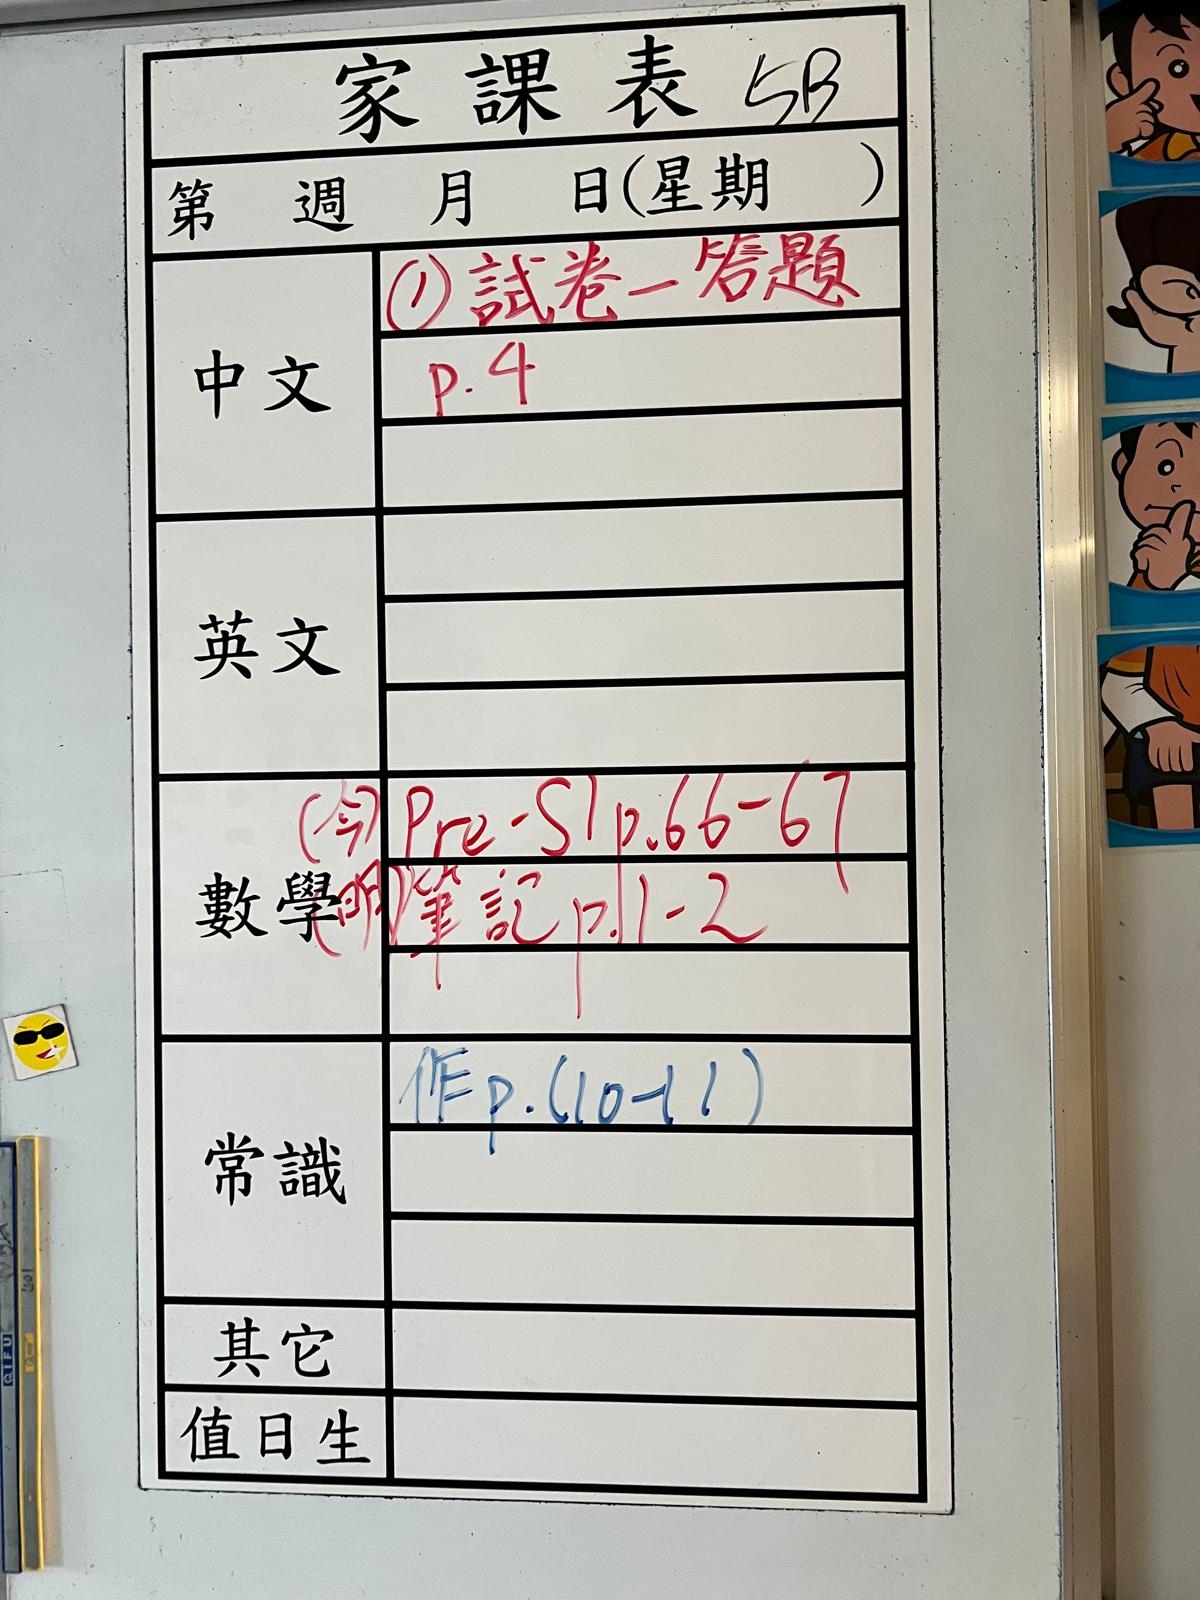 家課表 5B
第 週 月 日(星期 )
中文
(1)試卷一答題
p.4
英文
數學
(今) Pre-S1 p.66-67
(明) 筆記 p.1-2
常識
作 p.(10-11)
其它
值日生
QIFU